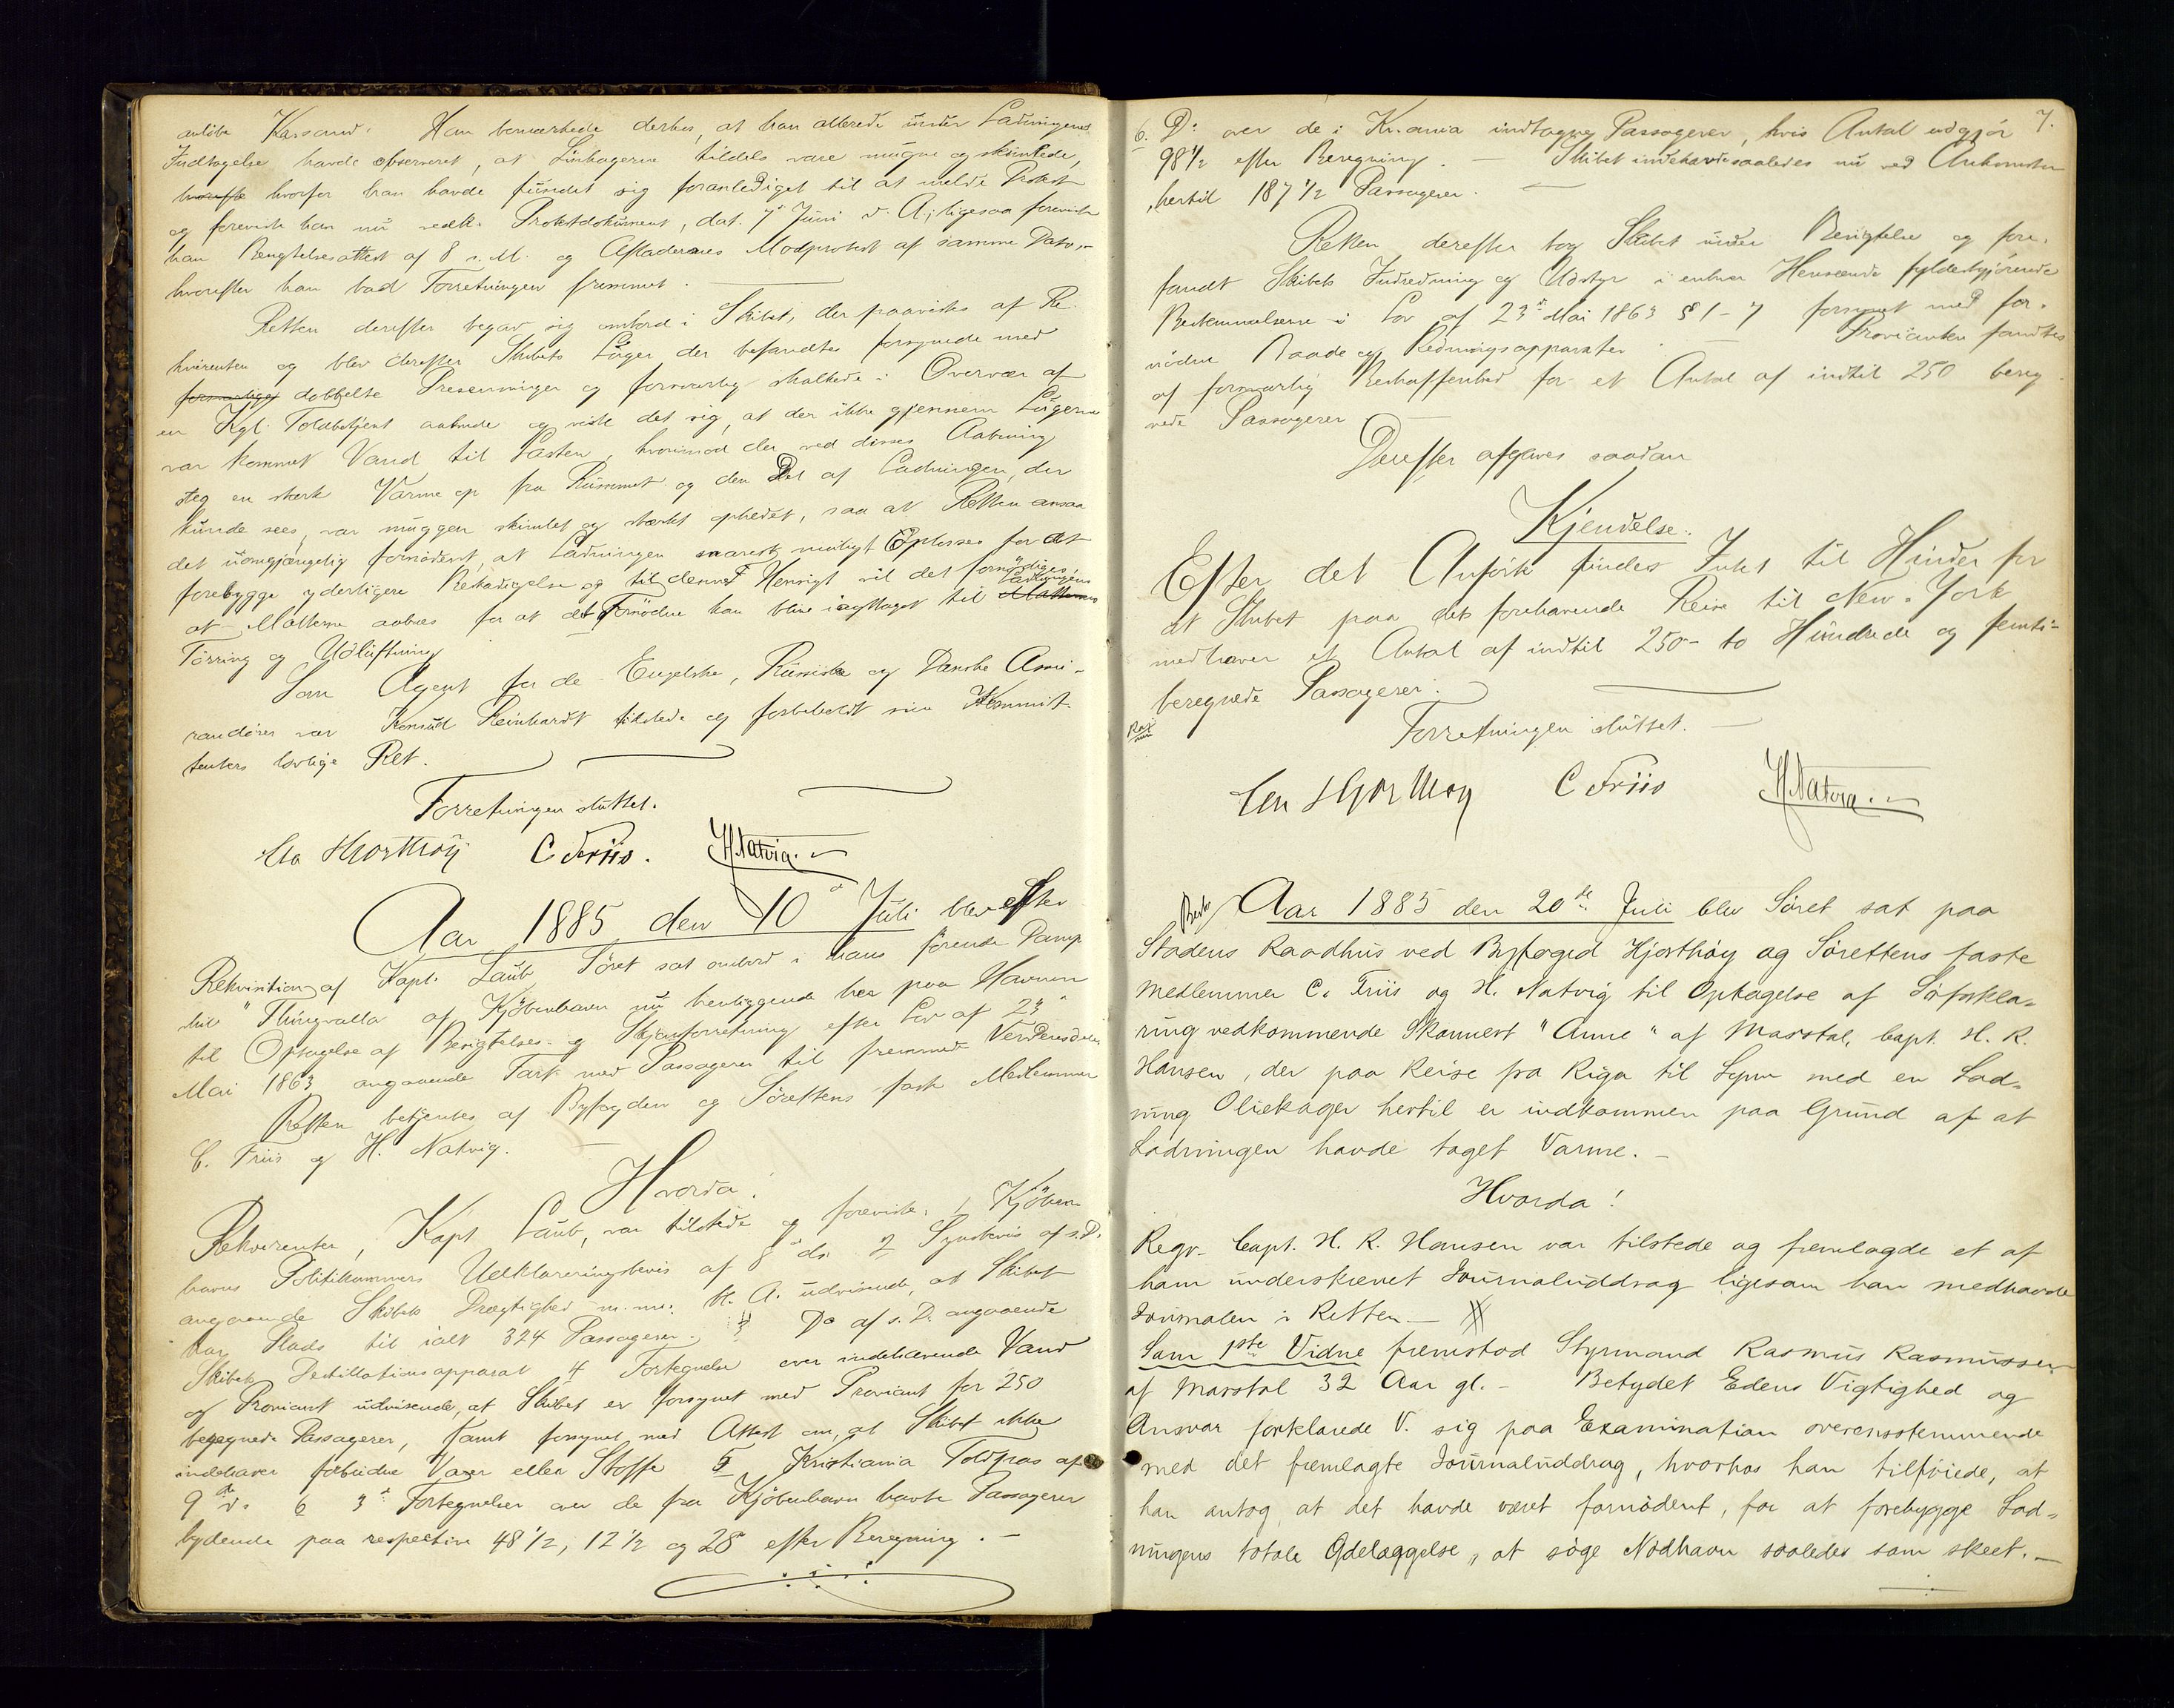 anløbe Krssand. Han bemærkede derhos, at han allerede under Ladningens
Indtagelse havde observeret, at Linkagerne tildels vare mugne og skimlede,
hvorefter hvorfor han havde fundet sig foranlediget til at melde Protest
og foreviste han nu vedk. Protestdokument, dat. 7de Juni d. A; ligesaa foreviste
han Besigtelsesattest af 8 s. M. og Afladernes Modprotest af samme Dato,
hvorefter han bad Forretningen fremmet.
Retten derefter begav sig ombord i Skibet, der paavistes af Re-
kvirenten og blev derefter Skibets Luger der befandtes forsynede med
forsvarlige dobbelte Presenninger og forsvarlig skalkede i Overvær af
en Kgl. Toldbetjent aabnede og viste det sig, at der ikke gjennem Lugerne
var kommet Vand til Lasten, hvorimod der ved disses Aabning
steg en stærk Varme op fra Rummet og den Del af Ladningen, der
kunde sees, var muggen skimlet og stærkt ophedet, saa at Retten ansaa
det uomgjængelig fornødent, at Ladningen snarest muligt Oplosses for at
forebygge yderligere Beskadigelse og til denned Hensigt vil det fornødiges,
at Matterne aabnes for at det Fornødne kan blive iagttaget til Matternes Ladningens
Tørring og Udluftning
Som Agent for de Engelske, Russiske og Danske Assu-
randører var Konsul Reinhardt tilstede og forbeholdt sine Kommit-
tenters lovlige Ret.
Forretningen sluttet.
Chr Hjorthøy C Friis. H. Natvig.
Aar 1885 den 10de Juli blev efter
Rekvisition af Kapt. Laub Søret sat ombord i hans førende Damp
skib "Thingvalla" af Kjøbenhavn nu henliggende her paa Havnen
til Optagelse af Besigtelses- og Skjønsforretning efter Lov af 23de
Mai 1863 angaaende Fart med Passagerer til fremmede Verdensdele
Retten betjentes af Byfogden og Sørettens faste Medlemmer
C. Friis og H. Natvig.
Hvorda.
Rekvirenten, Kapt Laub, var tilstede og foreviste: 1 Kjøben
havns Politikammers Udklareringsbevis af 8de ds. 2 Synsbevis af s. D.
angaaende Skibets Drægtighed m.m. Bl. A. udvisende, at Skibet
har Plads til ialt 324 Passagerer. 3 Do af s. D. angaaende
Skibets Destillationsapparat 4 Fortegnelse over indehavende Vand
og Proviant udvisende, at Skibet er forsynet med Proviant for 250
beregnede Passagerer, samt forsynet med Attest om, at Skibet ikke
indehaver forbudne Varer eller Stoffe 5 Kristiania Toldpas af
9de ds. 6 3de Fortegnelser over de fra Kjøbenhavn havte Passagerer
lydende paa respective 48 1/2, 12 1/2 og 28 efter Beregning. —
7.
6. Do over de i Kr.ania indtagne Passagerer, hvis Antal udgjør
98 1/2 efter Beregning. — Skibet indehavde saaledes nu ved Ankomsten
hertil 187 1/2 Passagerer.
Retten derefter tog Skibet under Besigtelse og fore-
fandt Skibets Indredning og Udstyr i enhver Henseende fyldestgjørende
Bestemmelserne i Lov af 23de Mai 1863 § 1-7 forsynet med for-
nødne Baade og Redningsapparater. — Provianten fandtes
af forsvarlig Beskaffenhed for et Antal af indtil 250 bereg
nede Passagerer
Derefter afgaves saadan
Kjendelse:
Efter det Anførte findes Intet til Hinder for
at Skibet paa det forehavende Reise til New-York
medhaver et Antal af indtil 250 - to Hundrede og femti-
beregnede Passagerer.
Forretningen sluttet. —
Chr Hjorthøy C Friis H. Natvig.
Aar 1885 den 20de Juli blev Søret sat paa
Stadens Raadhus ved Byfoged Hjorthøy og Sørettens faste
Medlemmer C. Friis og H. Natvig til Optagelse af Søforkla-
ring vedkommende Skonnert "Anne" af Marstal, Capt. H. R.
Hansen, der paa Reise fra Riga til Lynn med en Lad-
ning Oliekager hertil er indkommen paa Grund af at
Ladningen havde taget Varme. —
Hvorda!
Reqv. Capt. H. R. Hansen var tilstede og fremlagde et af
ham underskrevet Journaluddrag ligesom han medhavde
Journalen i Retten —
Som 1ste Vidne fremstod Styrmand Rasmus Rasmussen
af Marstal 32 Aar gl. — Betydet Edens Vigtighed og
Ansvar forklarede V. sig paa Examination overensstemmende
med det fremlagte Journaluddrag, hvorhos han tilføiede, at
han antog, at det havde været fornødent, for at forebygge Lad-
ningens totale Ødelæggelse, at søge Nødhavn saaledes som skeet. —